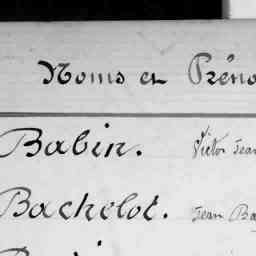 Noms et Préno
Babin. Victor Jean
Bachelot. Jean Ba